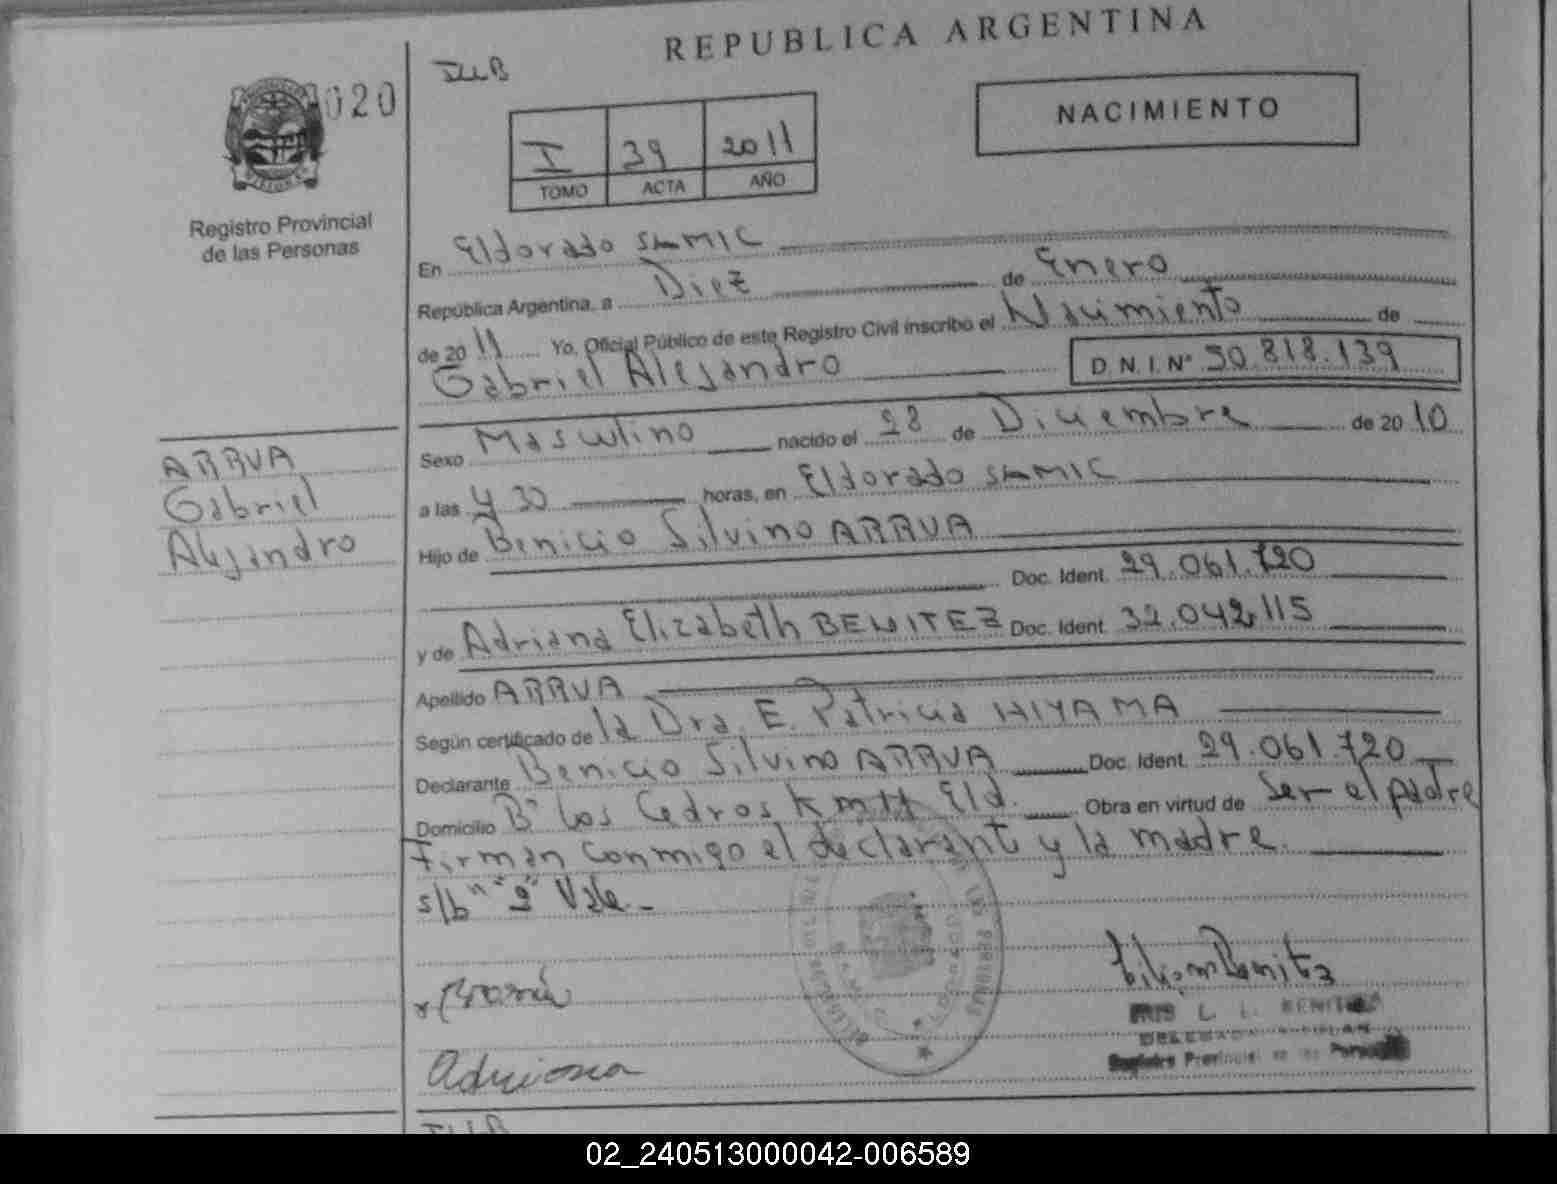 REPUBLICA ARGENTINA
ILLB
020
NACIMIENTO
I 39 2011
TOMO ACTA AÑO
Registro Provincial
de las Personas
En Eldorado SAMIC
República Argentina, a Diez de Enero
de 2011 Yo, Oficial Público de este Registro Civil inscribo el Nacimiento de
Gabriel Alejandro D.N.I.Nº 50.818.139
ARRUA
Gabriel
Alejandro
Sexo Masculino nacido el 28 de Diciembre de 2010
a las 4 30 horas, en Eldorado SAMIC
Hijo de Benicio Silvino ARRUA
Doc. Ident. 29.061.720
y de Adriana Elizabeth BENITEZ Doc. Ident. 32.042.115
Apellido ARRUA
Según certificado de la Dra. E. Patricia HIYAMA
Declarante Benicio Silvino ARRUA Doc. Ident. 29.061.720
Domicilio Bº Los Cedros Km 11 Eld. Obra en virtud de Ser el padre
Firman conmigo el declarante y la madre.
s/b "2" Vale.-
Adriana
L. L. BENITEZ
Registro Provincial de las Personas
ILLB
02_240513000042-006589